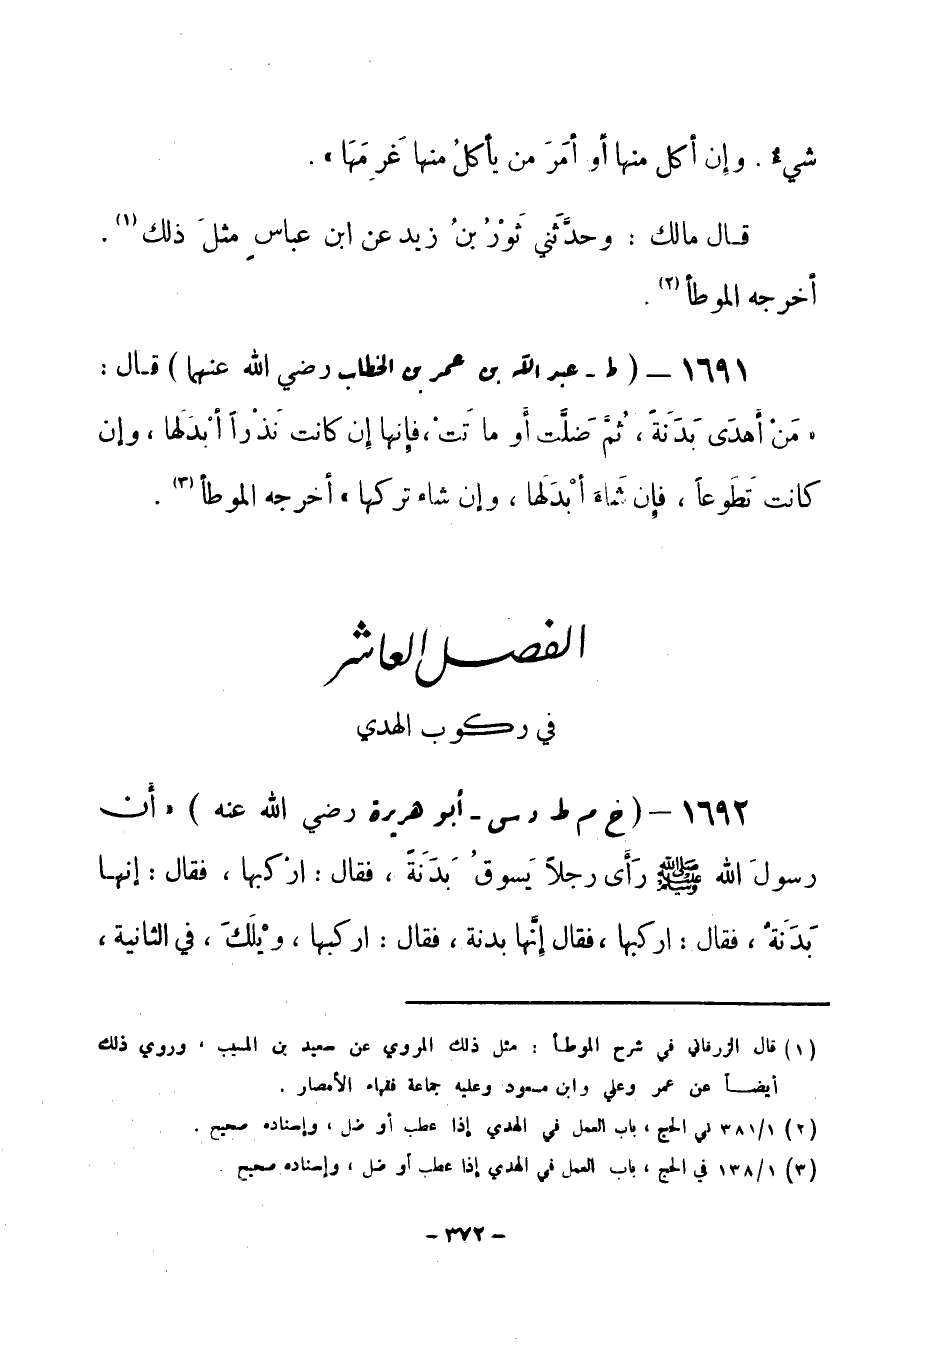 شيء . وإن أكل منها أو أمَرَ من يأكلُ منها غَرِمَهَا » .
قـال مالك : وحدَّثني ثَوْرُ بنُ زيد عن ابن عباسٍ مثلَ ذلك (١) .
أخرجه الموطأ (٢) .
١٦٩١ – ( ط - عبد الله بن عمر بن الخطاب رضي الله عنهما ) قـال :
« مَنْ أَهدَى بَدَنَةً ، ثُمَّ ضَلَّت أَو ماتَتْ ، فإنها إن كانت نَذْراً أبْدَلَها ، وإن
كانت تَطَوعاً ، فإن شاءَ أبْدَلَها ، وإن شاء تركها » أخرجه الموطأ (٣) .
الفصل العاشر
في ركوب الهدي
١٦٩٢ – ( خ م ط د س - أبو هريرة رضي الله عنه ) « أَن
رسولَ الله ﷺ رَأَى رجلاً يَسوقُ بَدَنَةً ، فقال : اركبها ، فقال : إنهـا
بَدَنَةٌ ، فقال : اركبها ، فقال إنَّها بدنة ، فقال : اركبها ، ويْلَكَ ، في الثانية ،
(١) قال الزرقاني في شرح الموطأ : مثل ذلك المروي عن سعيد بن المسيب ، وروي ذلك
أيضـاً عن عمر وعلي وابن مسعود وعليه جماعة فقهاء الأمصار .
(٢) ٣٨١/١ في الحج ، باب العمل في الهدي إذا عطب أو ضل ، وإسناده صحيح .
(٣) ١٣٨/١ في الحج ، باب العمل في الهدي إذا عطب أو ضل ، وإسناده صحيح .
- ٣٧٢ -